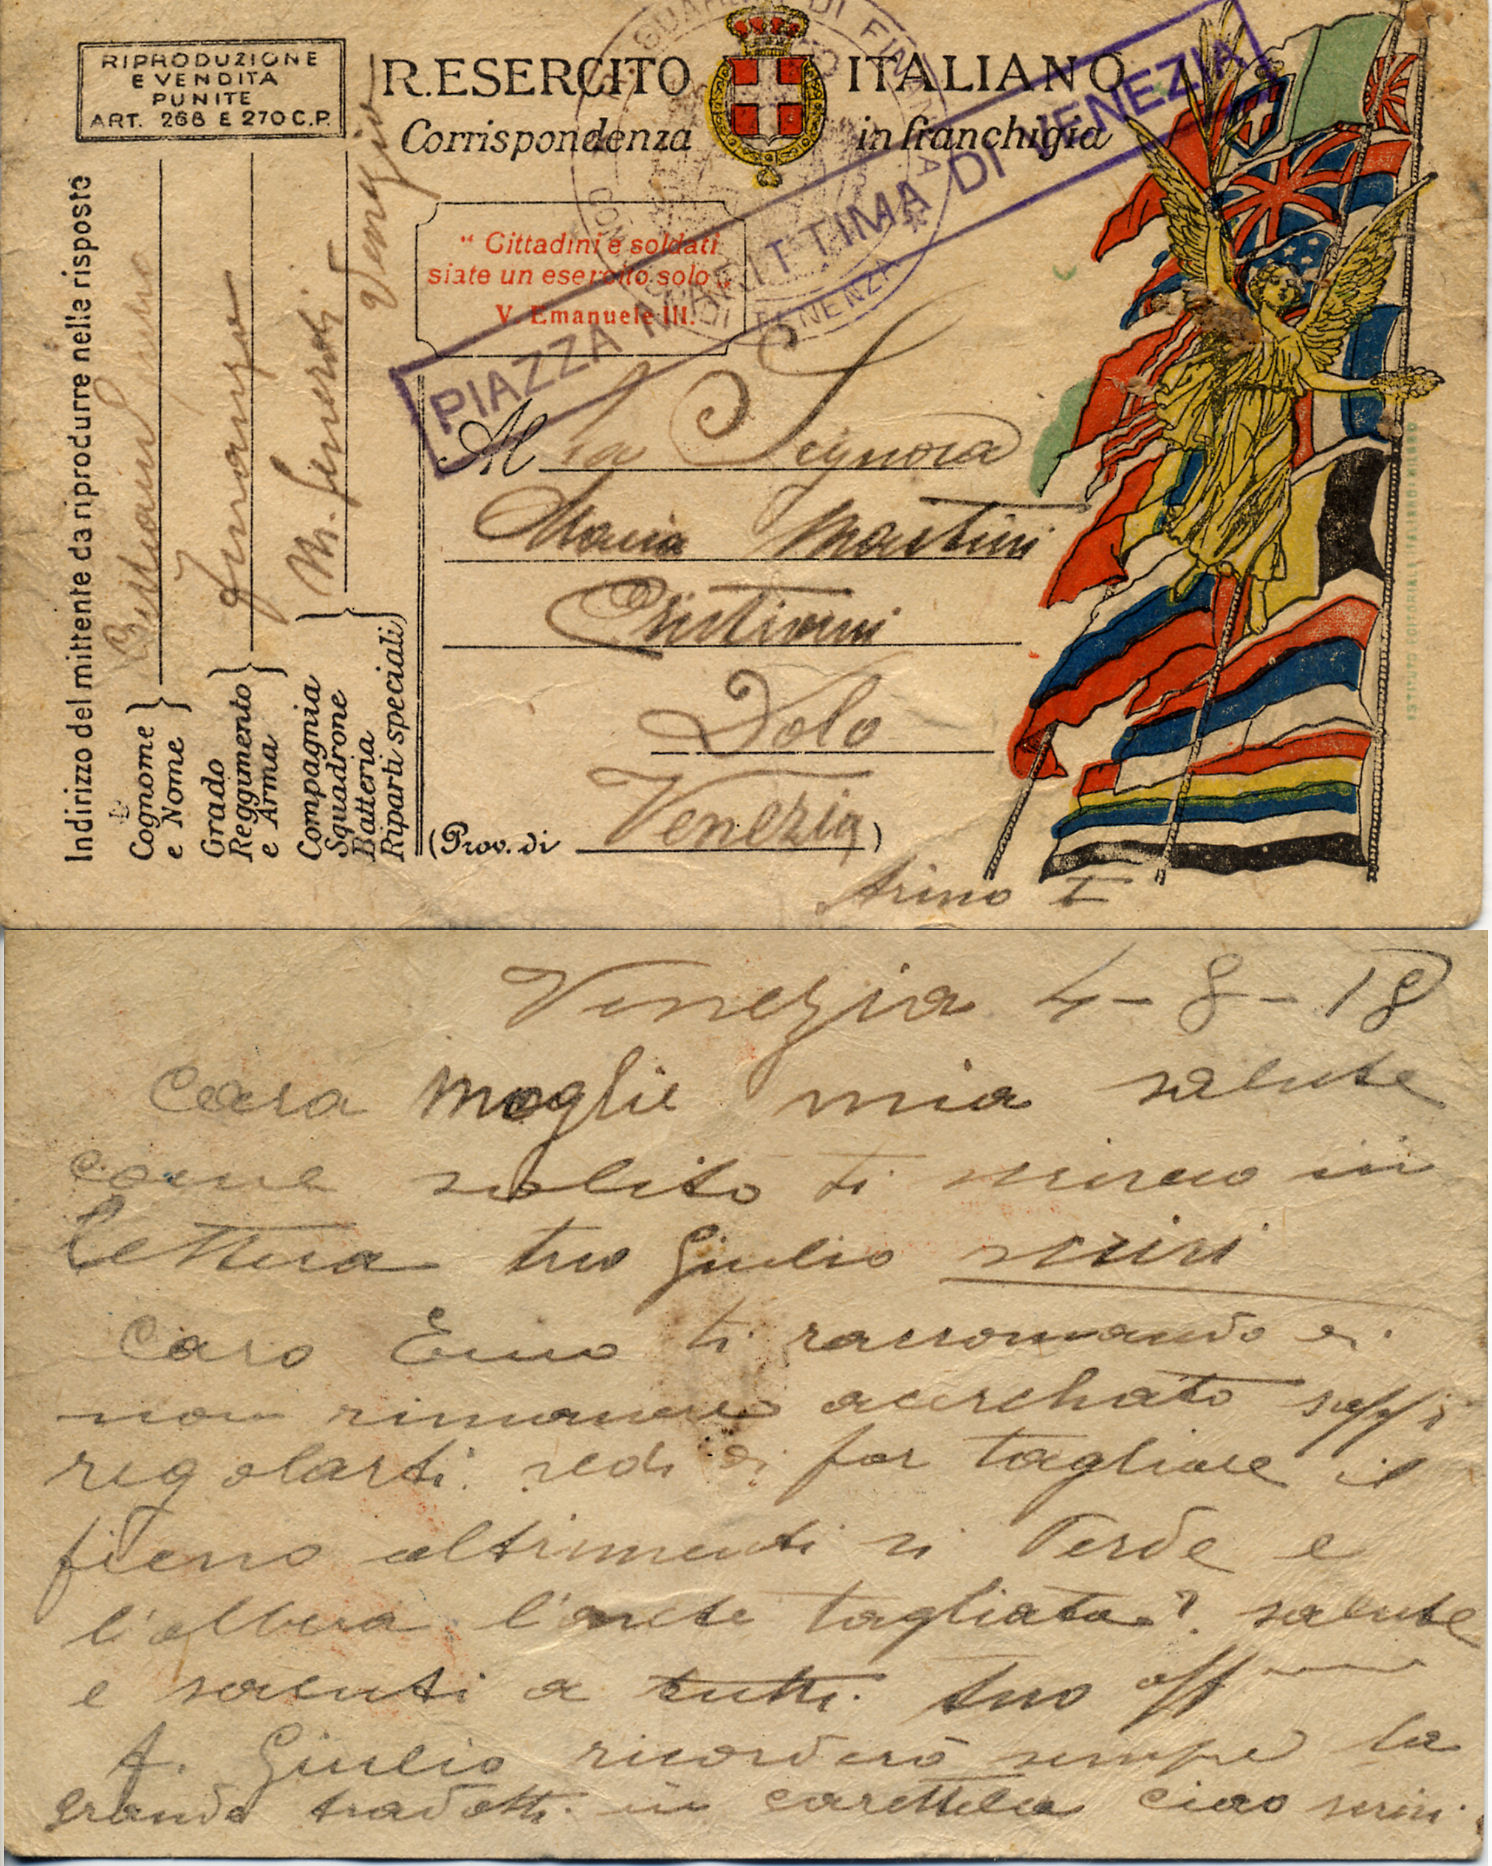 RIPRODUZIONE
E VENDITA
PUNITE
ART. 268 E 270 C.P.
R. ESERCITO ITALIANO
Corrispondenza in franchigia
R. GUARDIA DI FINANZA
DI VENEZIA
PIAZZA MARITTIMA DI VENEZIA
“ Cittadini e soldati
siate un esercito solo „
V. Emanuele III.
Indirizzo del mittente da riprodurre nelle risposte
Cognome
e Nome
Grado
Reggimento
e Arma
Compagnia
Squadrone
Batteria
Riparti speciali
Venezia
Alla Signora
Maria Martini
Cristiani
Dolo
(Prov. di Venezia)
Arino I
Venezia 4-8-18
Cara moglie mia salute
come solito ti scrivo in
lettera tuo Giulio scrivi
Caro ti raccomando di
non rimanere acerchato sappi
regolarti. vedi di far tagliare il
fieno altrimenti si perde e
l'albera l'avete tagliata? salute
e saluti a tutti. tuo aff
A. Giulio ricorderò sempre la
grande tradotta in carettela ciao scrivi.